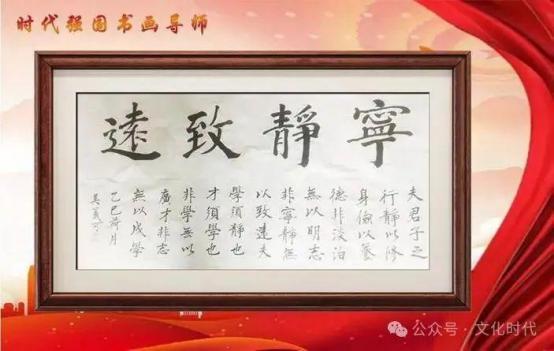 时代强国书画导师
寧靜致遠
夫君子之
行靜以修
身儉以養
德非淡泊
無以明志
非寧靜無
以致遠夫
學須靜也
才須學也
非學無以
廣才非志
無以成學
乙巳荷月
公众号 · 文化时代